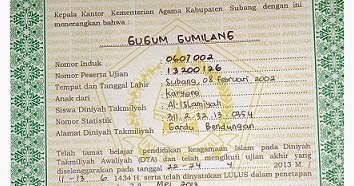 Kepala Kantor Kementerian Agama Kabupaten Subang dengan ini
menerangkan bahwa :
GUGUM GUMILANG
Nomor Induk 0607002
Nomor Peserta Ujian 13200126
Tempat dan Tanggal Lahir Subang, 08 Februari 2002
Anak dari Karyono
Siswa Diniyah Takmiliyah Al-Islamiyah
Nomor Statistik 311.2.32.13.0354
Alamat Diniyah Takmiliyah Gardu Bendungan
Telah tamat belajar pendidikan keagamaan Islam pada Diniyah
Takmiliyah Awaliyah (DTA) dan telah mengikuti ujian akhir yang
diselenggarakan pada tanggal 22-24 4 2013 M /
11 - 13 6 1434 H serta telah dinyatakan LULUS dalam penetapan
MEI 2013